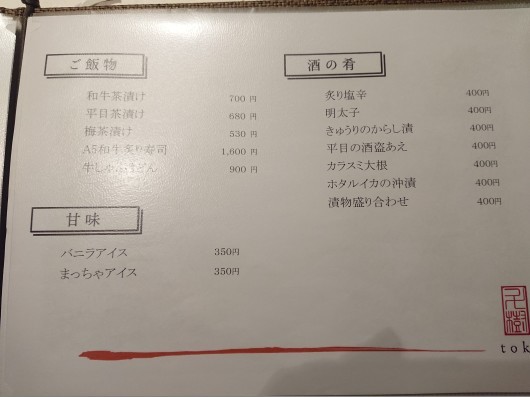 ご飯物
和牛茶漬け 700 円
平目茶漬け 680 円
梅茶漬け 530 円
A5和牛炙り寿司 1,600 円
牛しゃぶうどん 900 円
甘味
バニラアイス 350円
まっちゃアイス 350円
酒の肴
炙り塩辛 400円
明太子 400円
きゅうりのからし漬 400円
平目の酒盗あえ 400円
カラスミ大根 400円
ホタルイカの沖漬 400円
漬物盛り合わせ 400円
tok